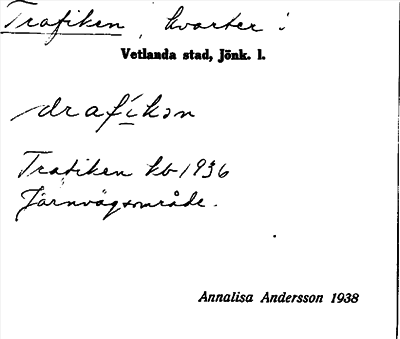 Trafiken, kvarter i
Vetlanda stad, Jönk. l.
trafíkən
Trafiken kb 1936
Järnvägsområde.
Annalisa Andersson 1938